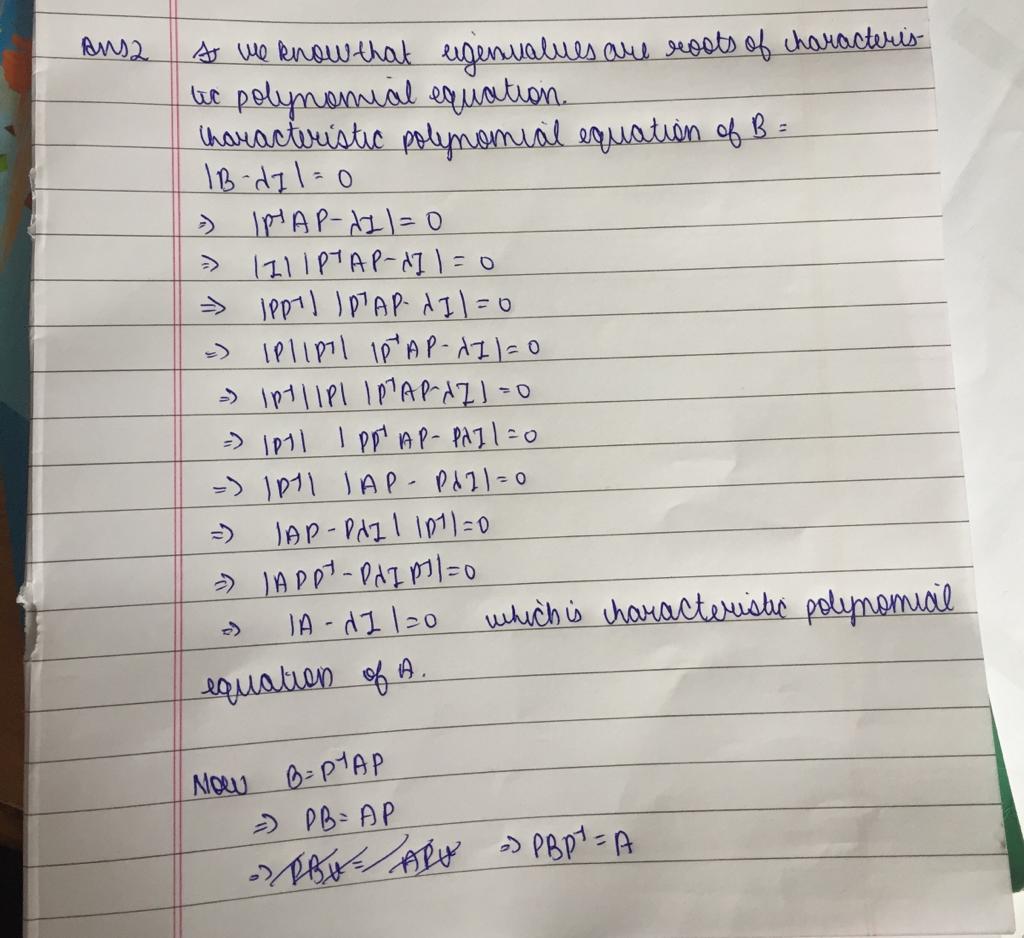 Ans 2 As we know that eigenvalues are roots of characteris-
tic polynomial equation.
Characteristic polynomial equation of B =
|B-λI| = 0
⇒ |P⁻¹AP-λI| = 0
⇒ |I| |P⁻¹AP-λI| = 0
⇒ |PP⁻¹| |P⁻¹AP-λI| = 0
⇒ |P||P⁻¹| |P⁻¹AP-λI| = 0
⇒ |P⁻¹||P| |P⁻¹AP-λI| = 0
⇒ |P⁻¹| |PP⁻¹AP-PλI| = 0
⇒ |P⁻¹| |AP-PλI| = 0
⇒ |AP-PλI| |P⁻¹| = 0
⇒ |APP⁻¹-PλIP⁻¹| = 0
⇒ |A-λI| = 0 which is characteristic polynomial
equation of A.
Now B = P⁻¹AP
⇒ PB = AP
⇒ PBv = APv ⇒ PBP⁻¹ = A